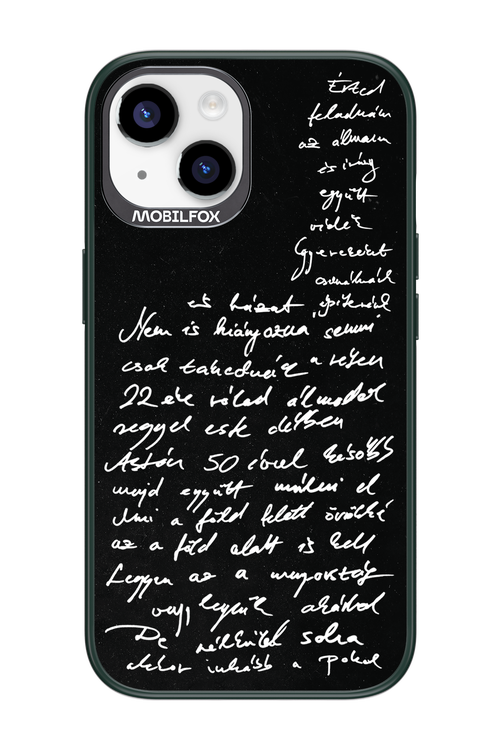 MOBILFOX
Érted
feladnám
az álmaim
és irány
együtt
vidék
Gyerekeket
csinálnánk
és házat építenénk
Nem is hiányozna semmi
csak takednánk a
22 éve rólad álmodok
reggel este délben
Aztán 50 évvel később
majd együtt múlni el
Ami a föld felett örökké
az a föld alatt is kell
Legyen az a mennyország
vagy legyünk akárhol
De nélküled soha
akkor inkább a pokol